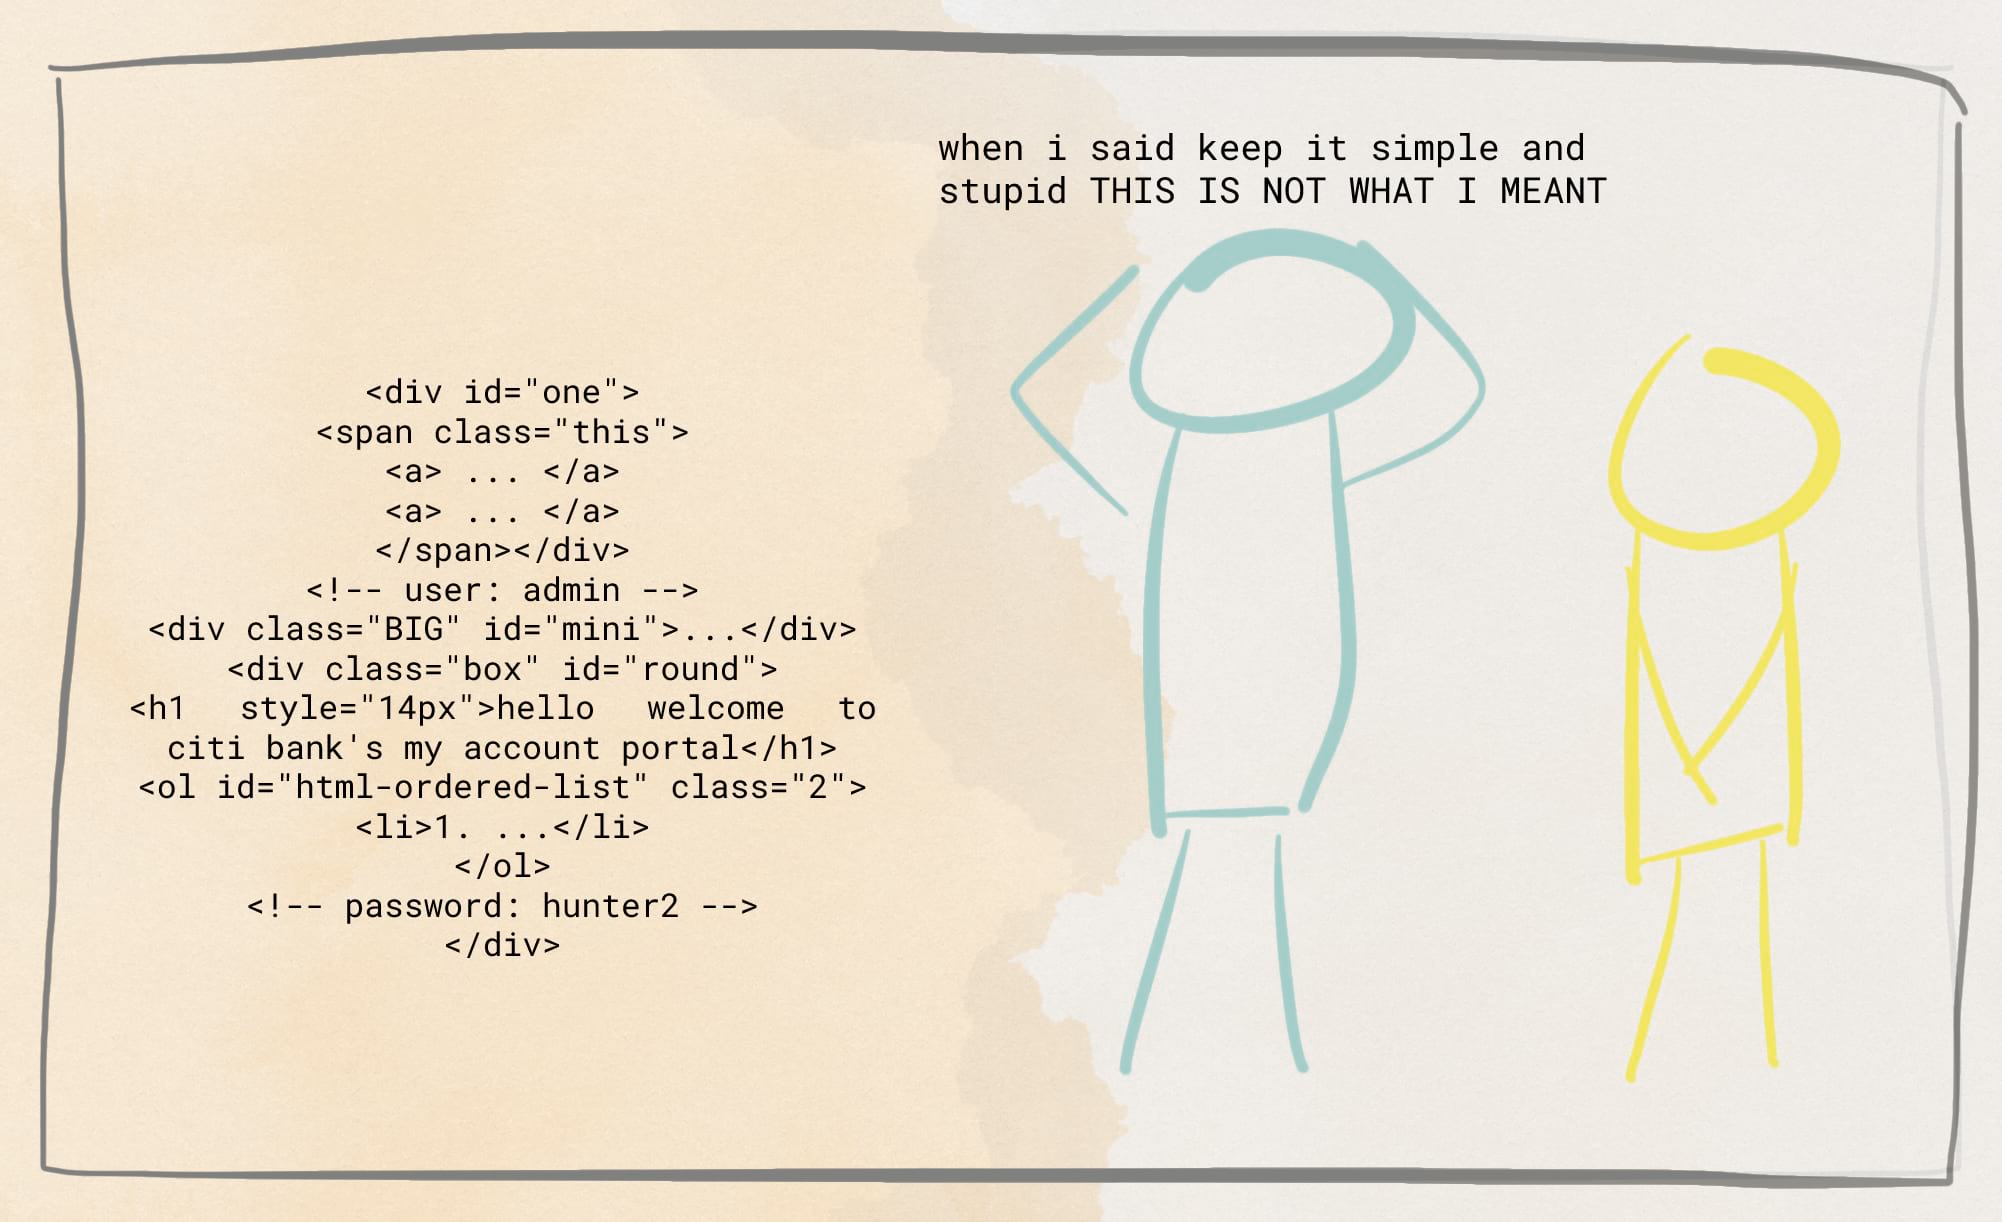 when i said keep it simple and
stupid THIS IS NOT WHAT I MEANT
<div id="one">
<span class="this">
<a> ... </a>
<a> ... </a>
</span></div>
<!-- user: admin -->
<div class="BIG" id="mini">...</div>
<div class="box" id="round">
<h1 style="14px">hello welcome to
citi bank's my account portal</h1>
<ol id="html-ordered-list" class="2">
<li>1. ...</li>
</ol>
<!-- password: hunter2 -->
</div>